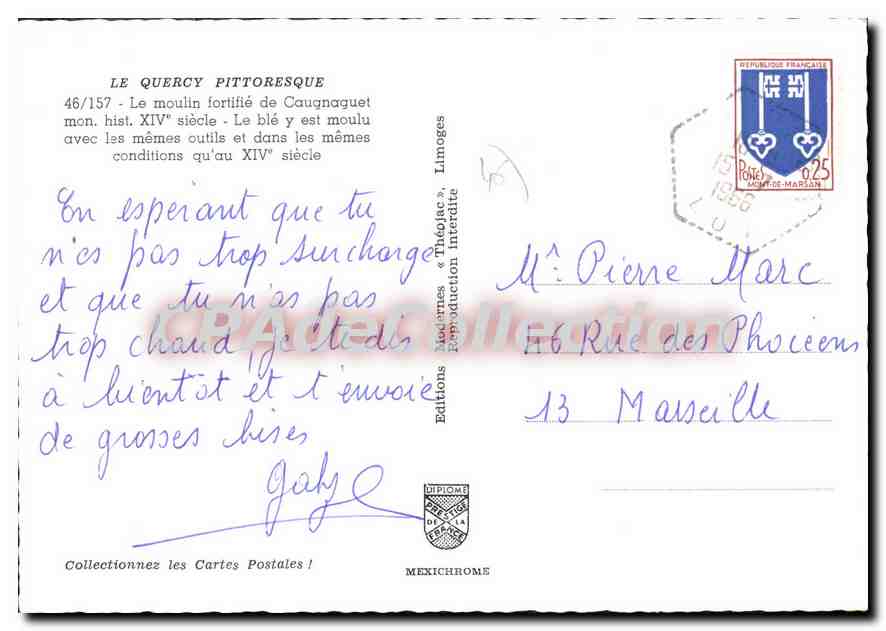 LE QUERCY PITTORESQUE
46/157 - Le moulin fortifié de Caugnaguet
mon. hist. XIVe siècle - Le blé y est moulu
avec les mêmes outils et dans les mêmes
conditions qu'au XIVe siècle
En espérant que tu
n'es pas trop surchargé
et que tu n'as pas
trop chaud, je te dis
à bientôt et t'envoie
de grosses bises
Editions Modernes « Théojac », Limoges
Reproduction interdite
RÉPUBLIQUE FRANÇAISE
POSTES 0,25
MONT-DE-MARSAN
15
1966
LOT
Mr. Pierre Marc
46 Rue des Phocéens
13 Marseille
CPAdeCollection
DIPLOME
PRESTIGE
DE LA
FRANCE
Collectionnez les Cartes Postales !
MEXICHROME